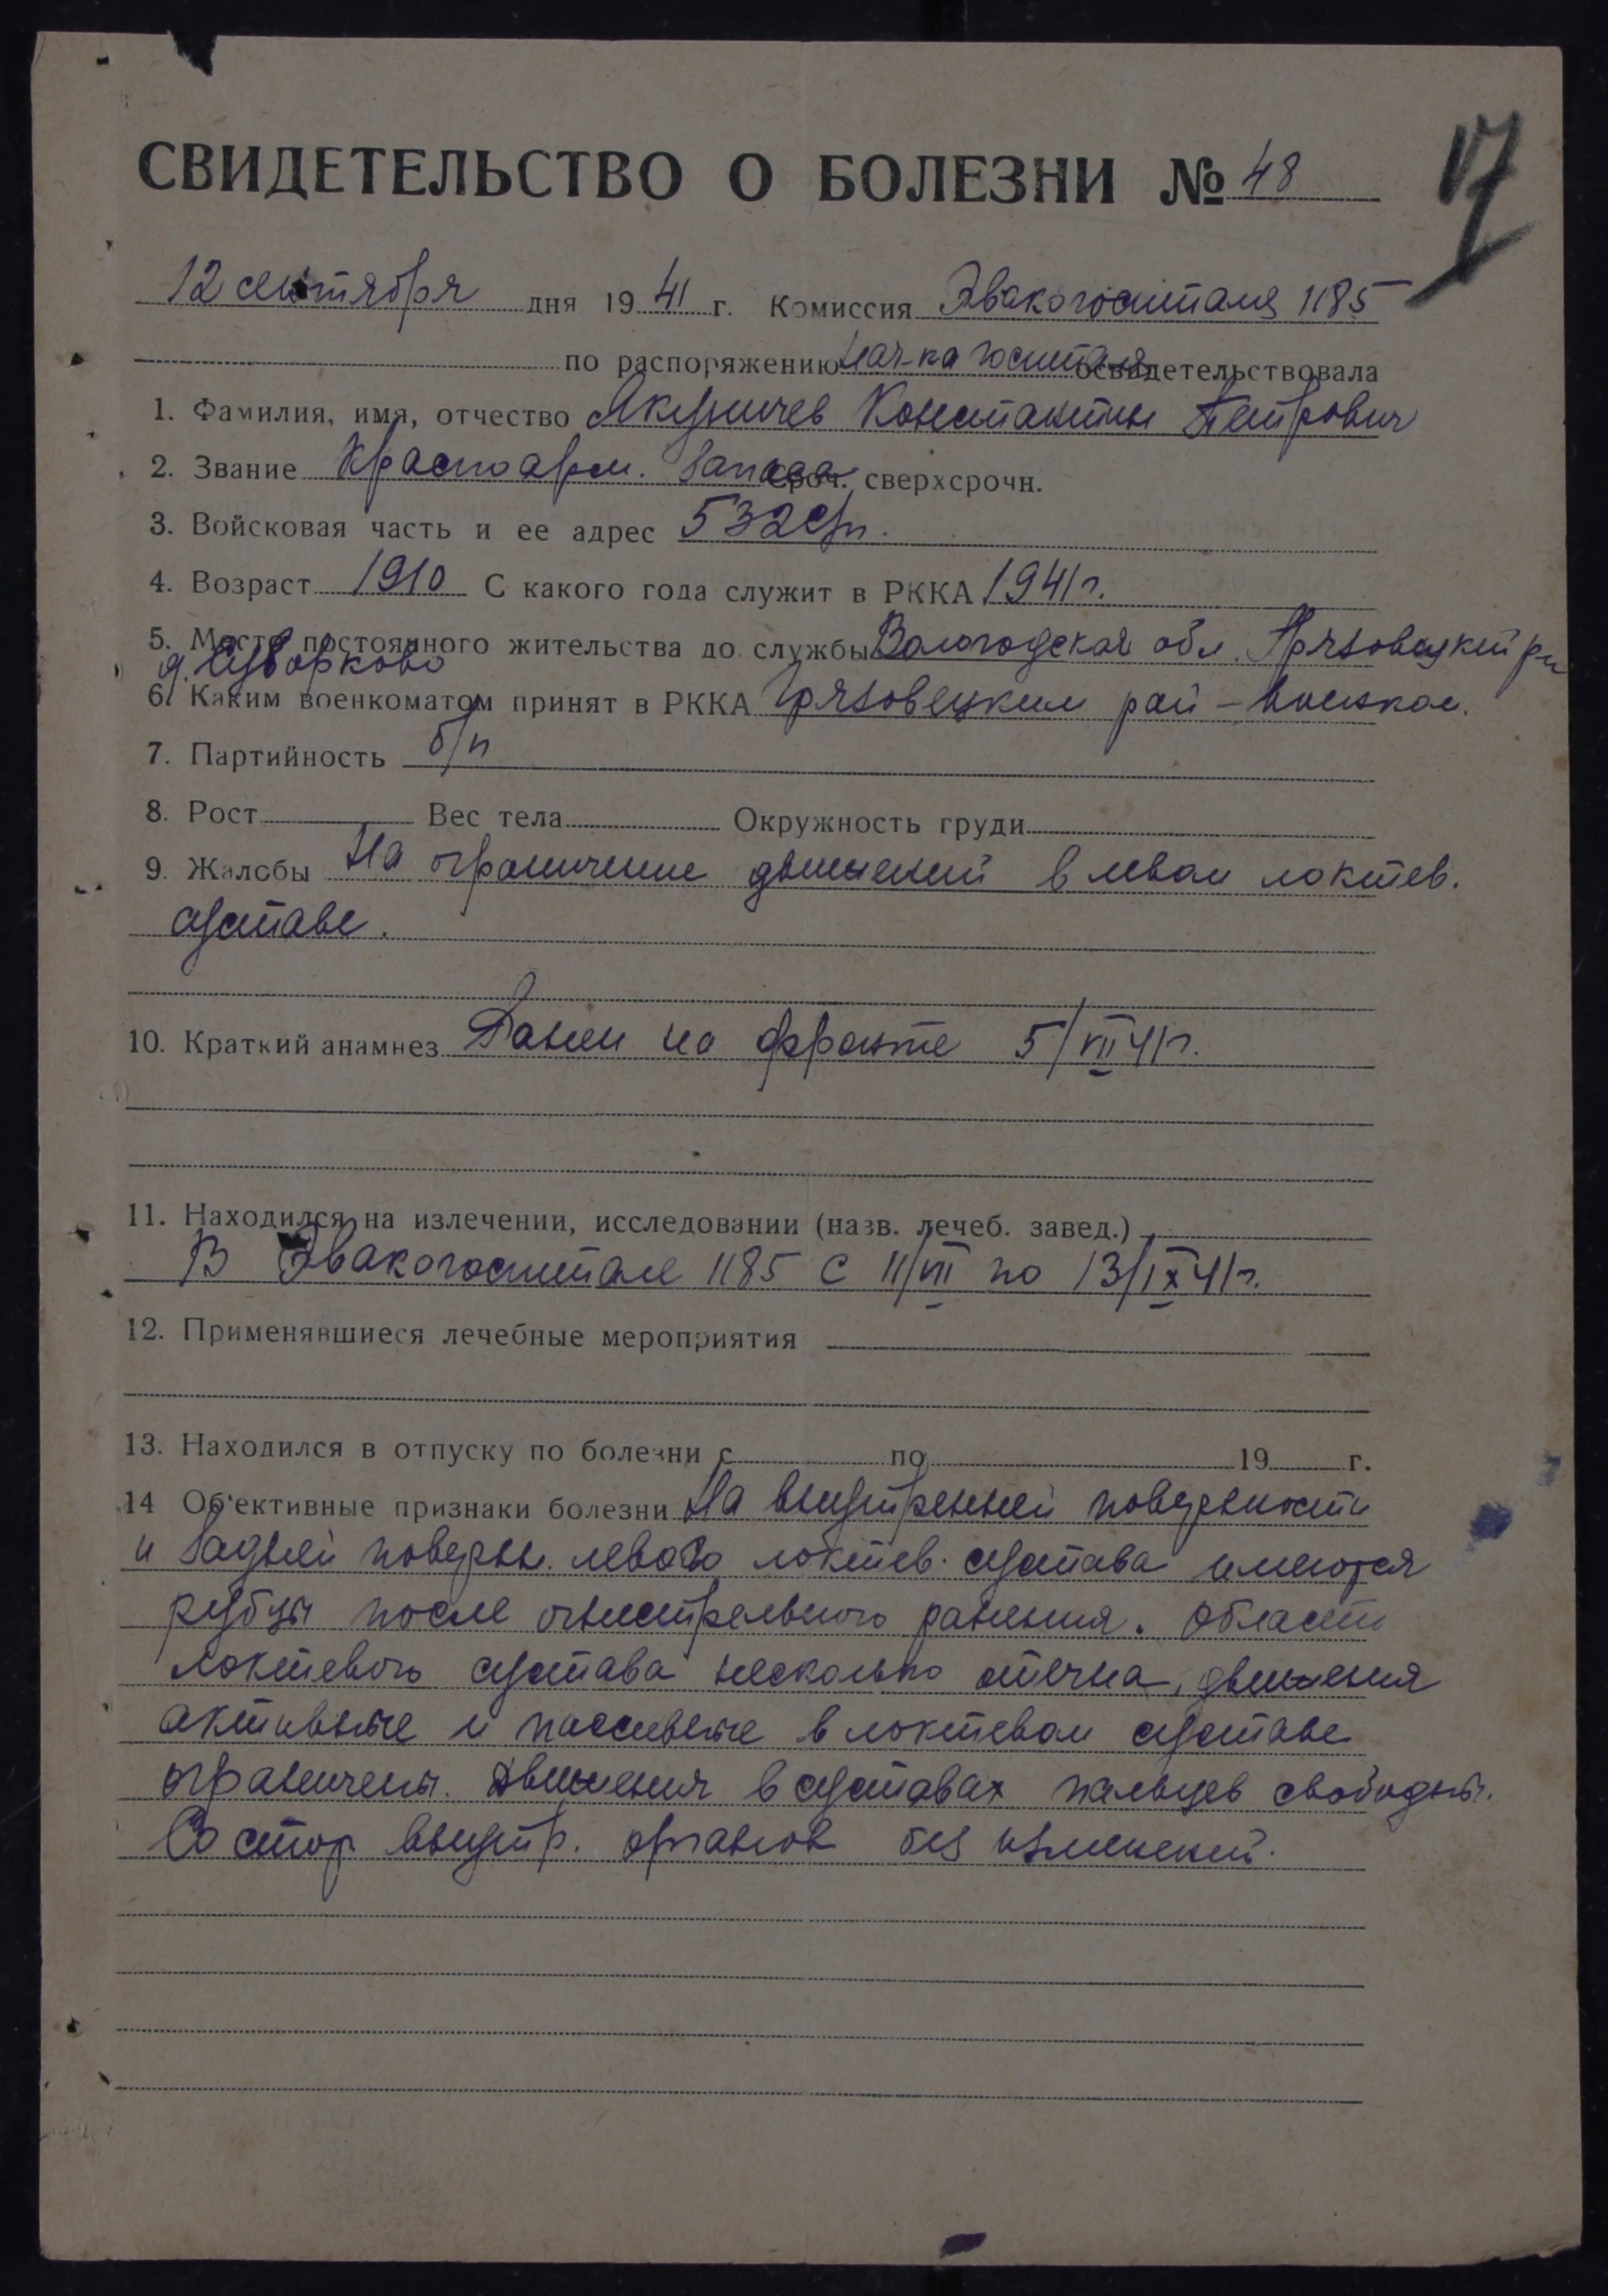 СВИДЕТЕЛЬСТВО О БОЛЕЗНИ № 48
17
12 сентября дня 1941 г. Комиссия Эвакогоспиталя 1185
по распоряжению нач-ка госпиталя освидетельствовала
1. Фамилия, имя, отчество Якуничев Константин Петрович
2. Звание Красноарм. запаса сроч. сверхсрочн.
3. Войсковая часть и ее адрес 532 сп.
4. Возраст 1910 С какого года служит в РККА 1941 г.
5. Место постоянного жительства до службы Вологодская обл. Грязовецкий р-н
д. Суворково
6. Каким военкоматом принят в РККА Грязовецким рай-военком.
7. Партийность б/п
8. Рост Вес тела Окружность груди
9. Жалобы На ограничение движений в левом локтев.
суставе.
10. Краткий анамнез Ранен на фронте 5/VII 41 г.
11. Находился на излечении, исследовании (назв. лечеб. завед.)
В Эвакогоспитале 1185 с 11/VII по 13/IX 41 г.
12. Применявшиеся лечебные мероприятия
13. Находился в отпуску по болезни с по 19 г.
14 Об'ективные признаки болезни На внутренней поверхности
и задней поверхн. левого локтев. сустава имеются
рубцы после огнестрельного ранения. Область
локтевого сустава несколько отечна, движения
активные и пассивные в локтевом суставе
ограничены. Движения в суставах пальцев свободны.
Со стор. внутр. органов без изменений.